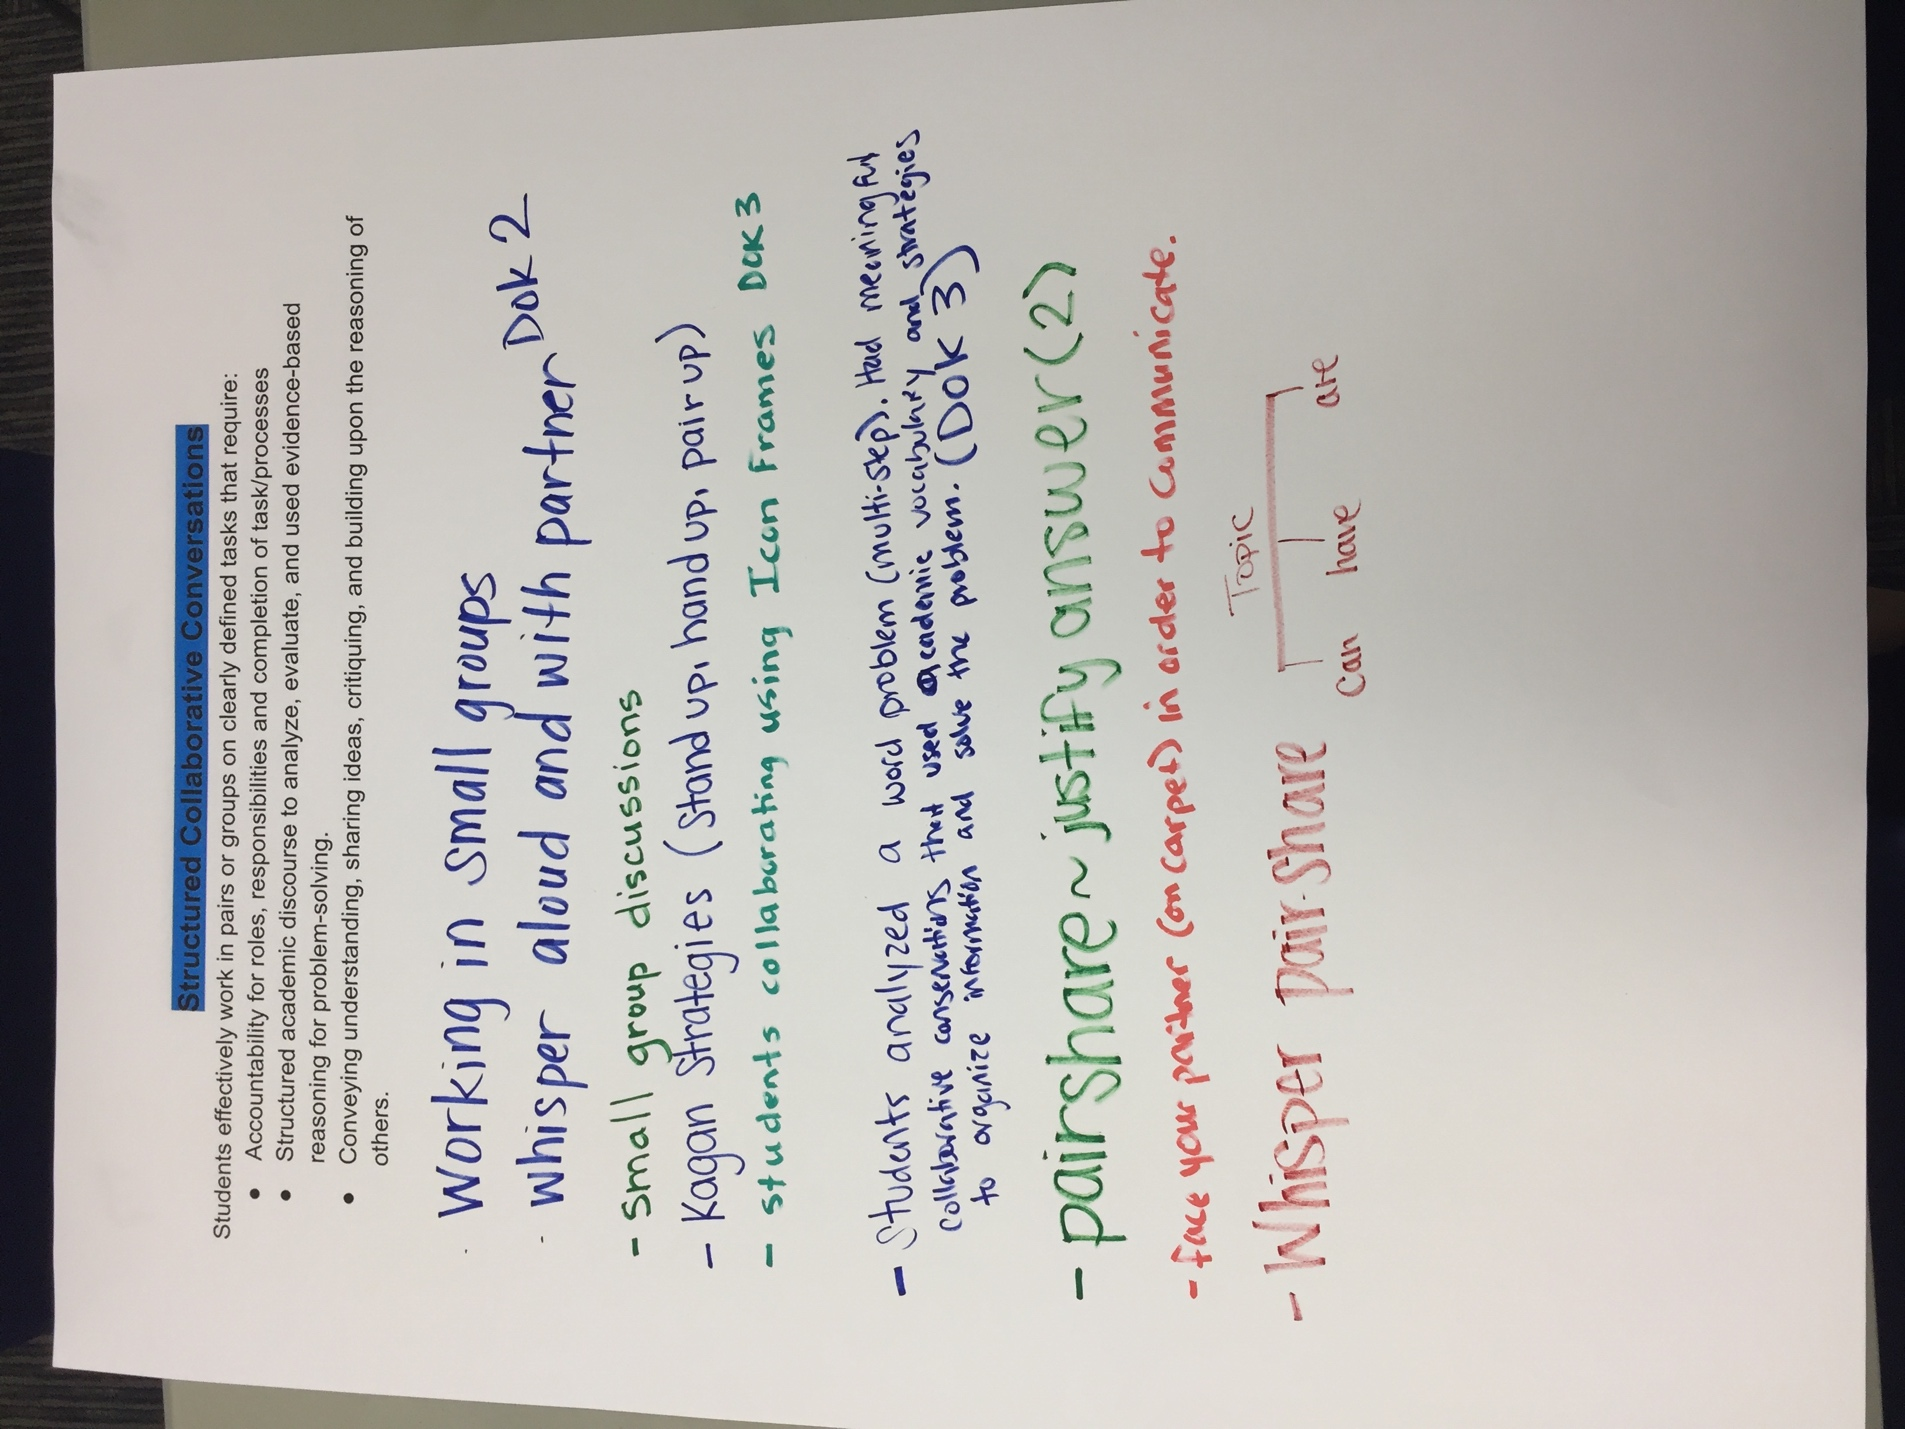 Structured Collaborative Conversations
Students effectively work in pairs or groups on clearly defined tasks that require:
● Accountability for roles, responsibilities and completion of task/processes
● Structured academic discourse to analyze, evaluate, and used evidence-based
reasoning for problem-solving.
● Conveying understanding, sharing ideas, critiquing, and building upon the reasoning of
others.
· Working in small groups
· whisper aloud and with partner Dok 2
- small group discussions
- Kagan Strategies (Stand up, hand up, pair up)
- students collaborating using Icon Frames DOK 3
- Students analyzed a word problem (multi-step). Had meaningful
collaborative conservations that used academic vocabulary and strategies
to organize information and solve the problem. (DOK 3)
- pairshare ~ justify answer (2)
- face your partner (on carpet) in order to communicate.
- Whisper pair-share
Topic
can have are